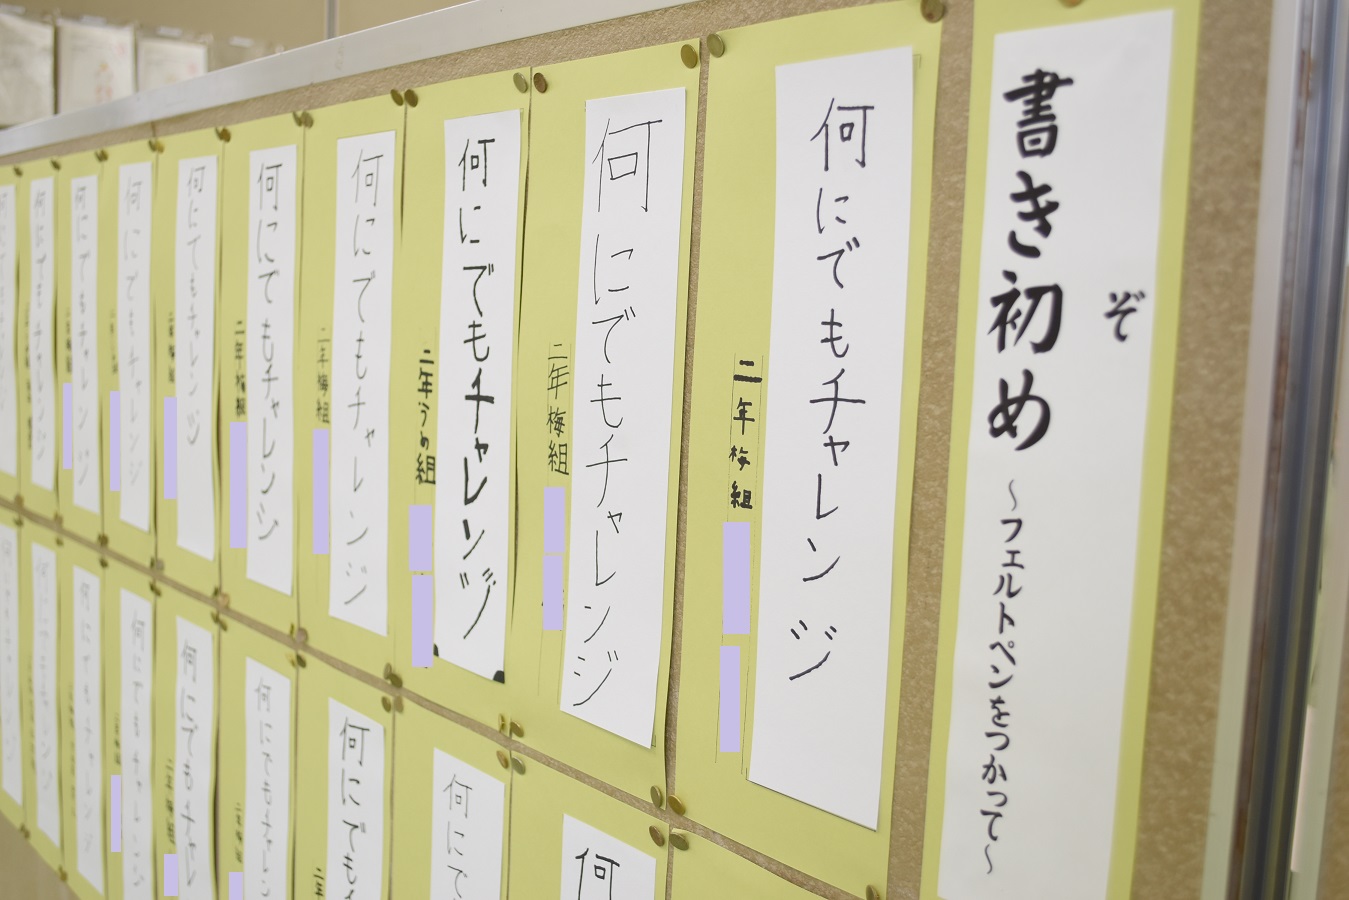 書き初め
ぞ
～フェルトペンをつかって～
何にでもチャレンジ
二年梅組
何にでもチャレンジ
二年梅組
何にでもチャレンジ
二年うめ組
何にでもチャレンジ
二年梅組
何にでもチャレンジ
二年梅組
何にでもチャレンジ
何にでもチャレンジ
何にでもチャレンジ
何にでもチャレンジ
何
何にで
何にでも
何にでもチャレン
何にでもチャレ
何にでもチャレンジ
何にでもチャレンジ